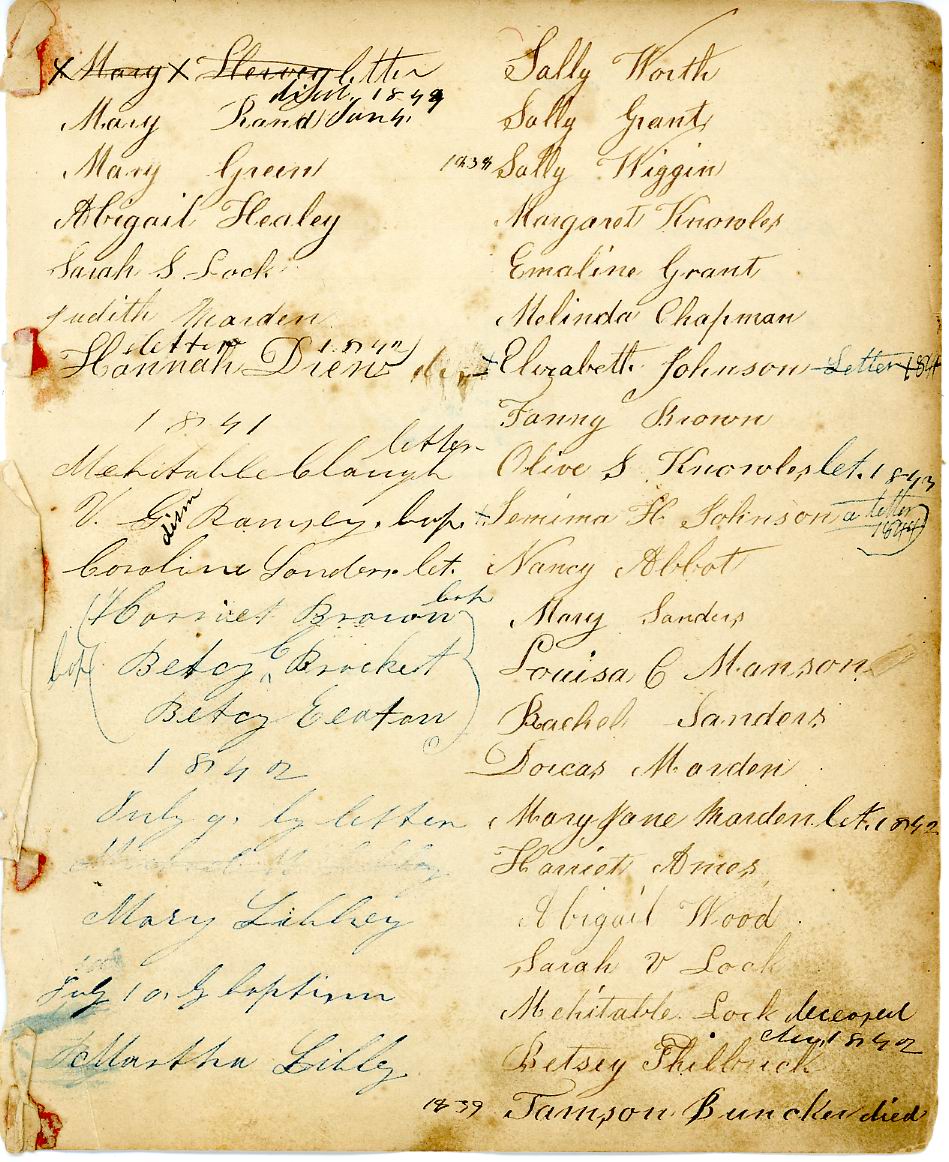 x Mary x Hervey letter
dism. 1849
Mary Rand Jan 4.
Mary Green
Abigail Healey
Sarah S. Lock
Judith Marden
letter 184
Hannah Drew
1841
letter
Mehitable Clough
V. G. Ramsey. bap.
dism
Caroline Sanders. let.
Harriet Brown
Betcy C Brocket
Betcy Eeaton
1842
July 9. by letter
Mary Libbey
July 10. by baptism
Martha Libby
Sally Worth
Sally Grant
1838 Sally Wiggin
Margaret Knowles
Emaline Grant
Melinda Chapman
Elizabeth Johnson Letter 184
Fanny Brown
Olive S. Knowles, let. 1843
Jemima H. Johnson a letter
1844
Nancy Abbot
Mary Sanders
Louisa C Manson
Rachel Sanders
Dorcas Marden
Mary Jane Marden let. 1842
Harriet Ames
Abigail Wood
Sarah V Lock
Mehitable. Lock deceased
1842
Betsey Philbrick
1839 Tamson Buncker died